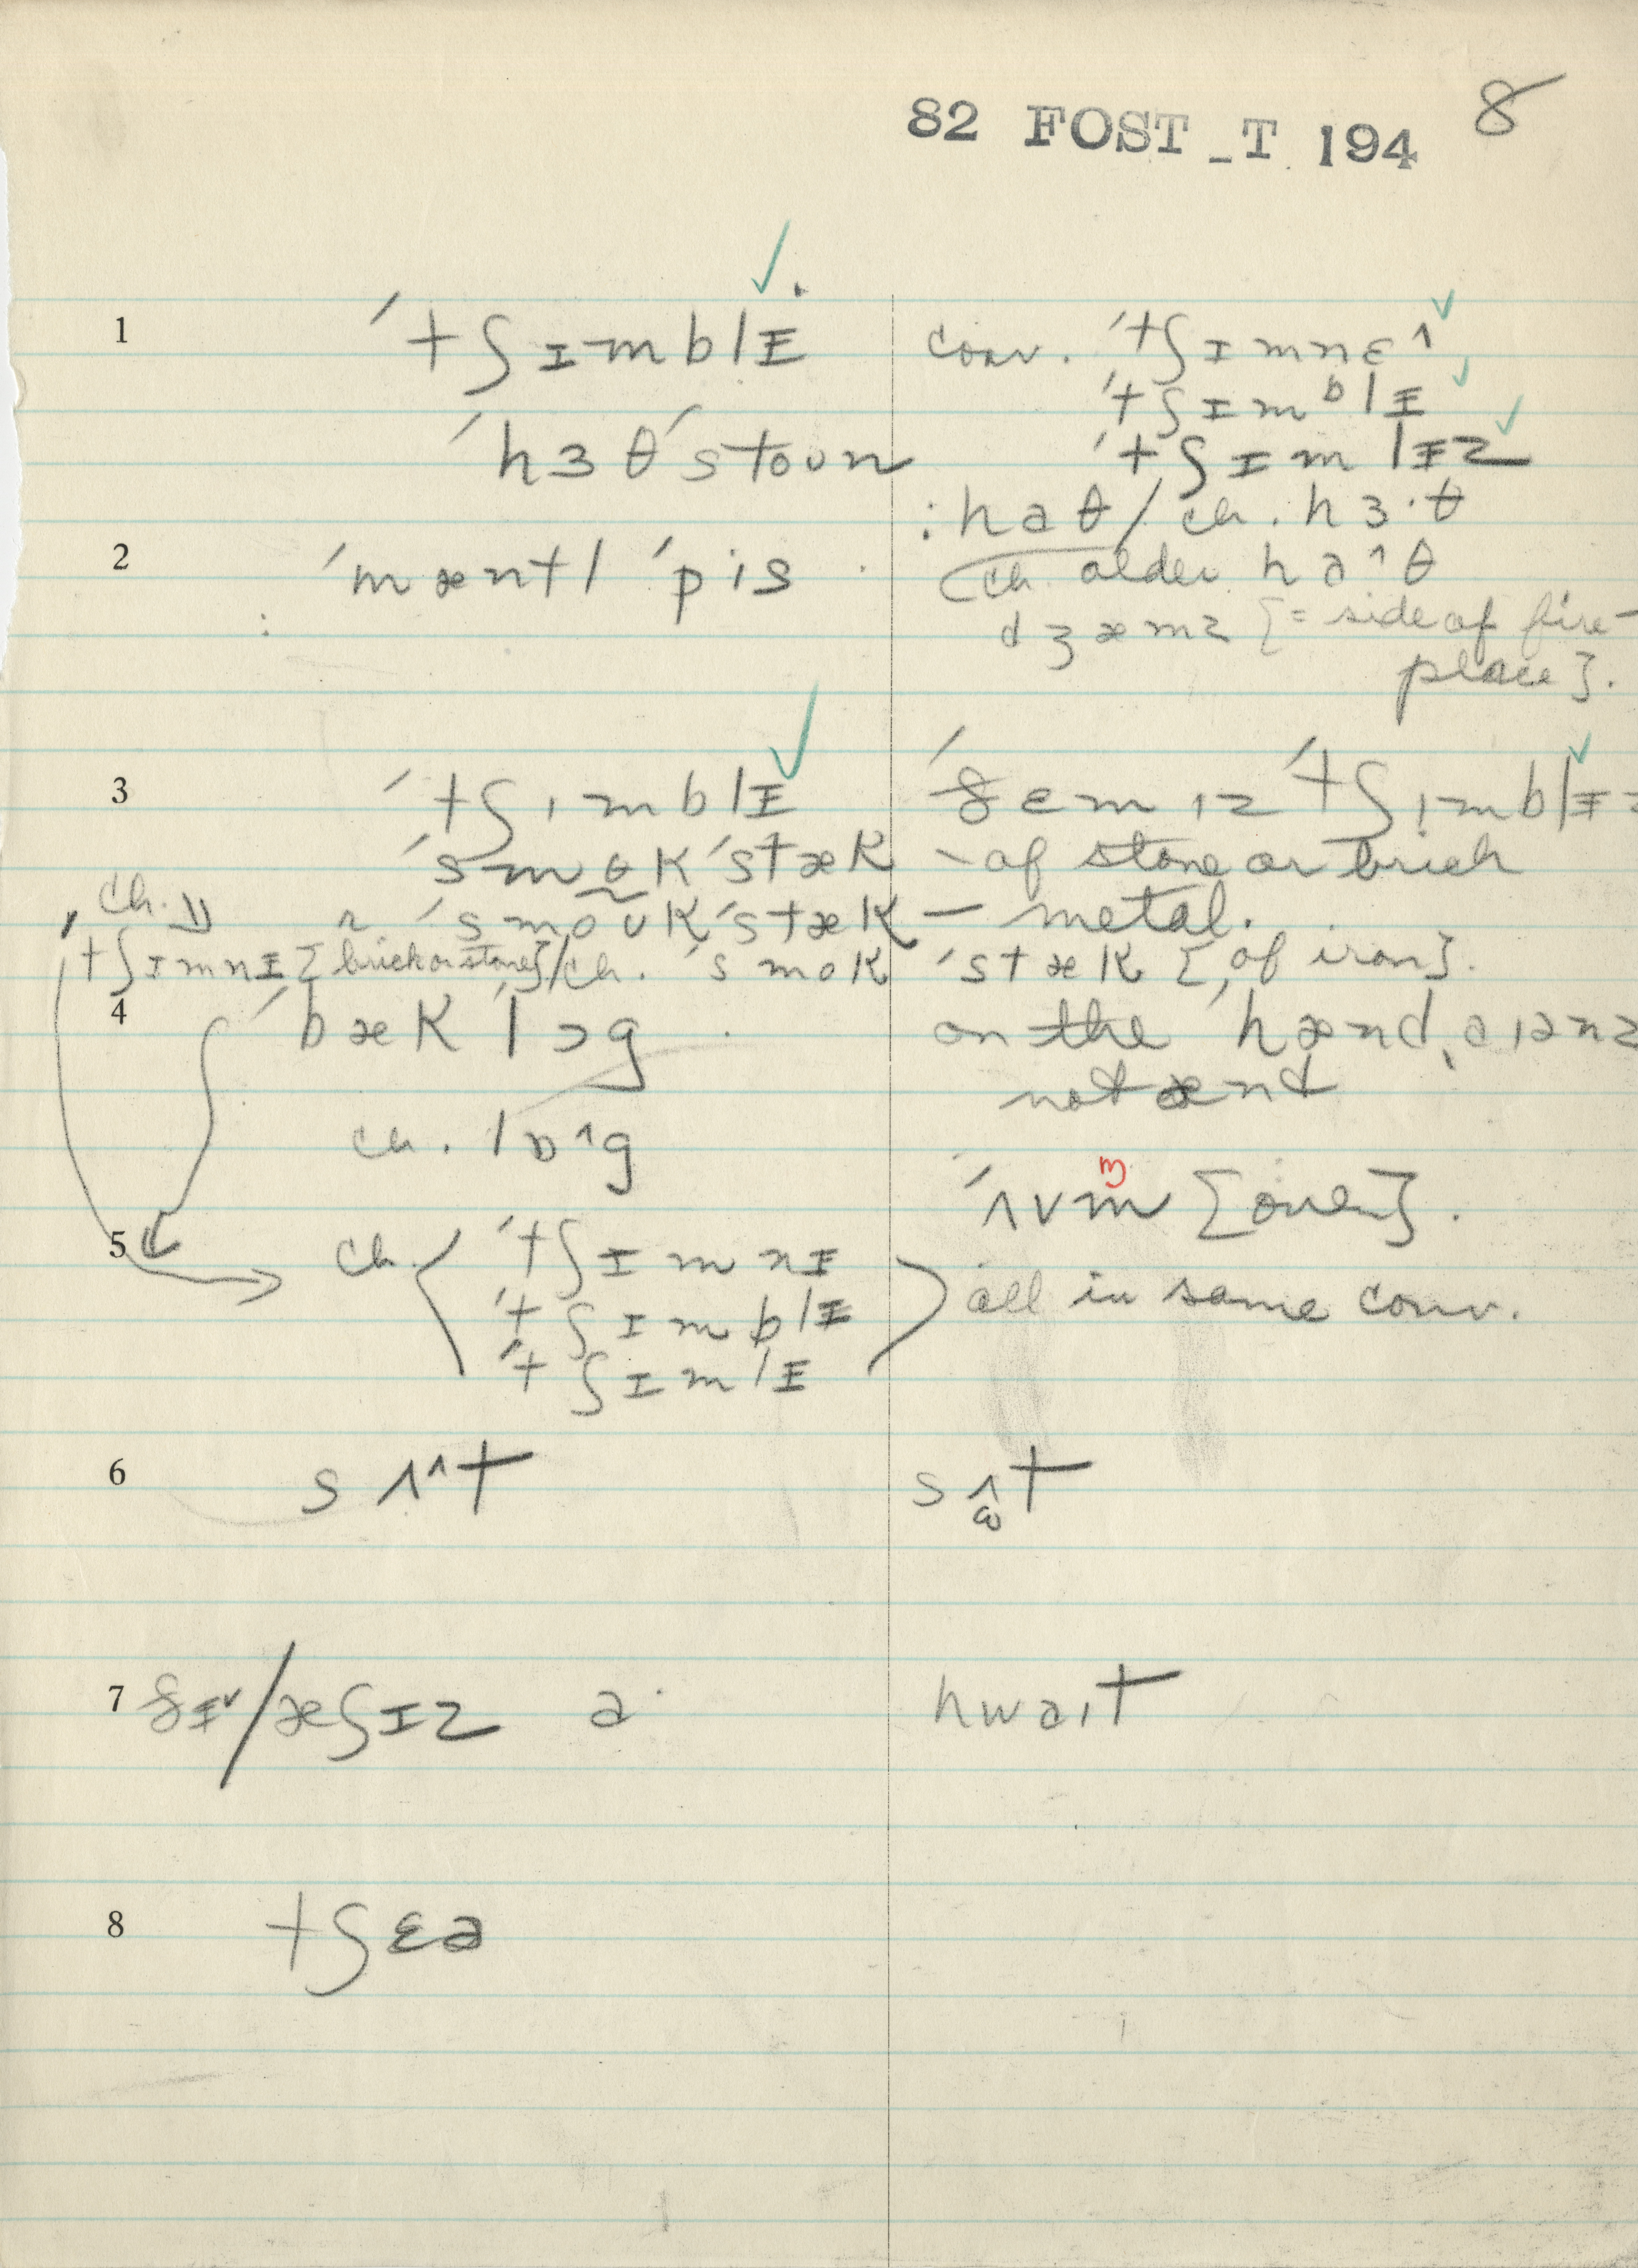 82 FOST_T 194 8
1 ˈtʃɪmblɪ conv. ˈtʃɪmnɛ^
ˈtʃɪmᵇlɪ
ˈhɜθˈstoun ˈtʃɪmlɪz
:haθ/ch. hɜ·θ
2 ˈmæntl ˈpis. ch. older ha^θ
dʒæmz [= side of fire-
place].
3 ˈtʃɪmblɪ ˈðemɪz ˈtʃɪmblɪz
ˈsmɵKˈstæK - of stone or brick
ch. ⇓ n ˈsmoʊKˈstæK — metal.
ˈtʃɪmnɪ [brick or stone]/ch. ˈsmoK ˈstæK [of iron].
4 ˈbæK lɔg. on the ˈhænd,aɪanz
not ænd
ch. lɒ^g
ˈʌvm [oven].
5 ch. ˈtʃɪmnɪ
ˈtʃɪmblɪ all in same conv.
ˈtʃɪmlɪ
6 sʌ^t sʌt
7 ðɪ˅/æʃɪz a· hwaɪt
8 tʃɛə